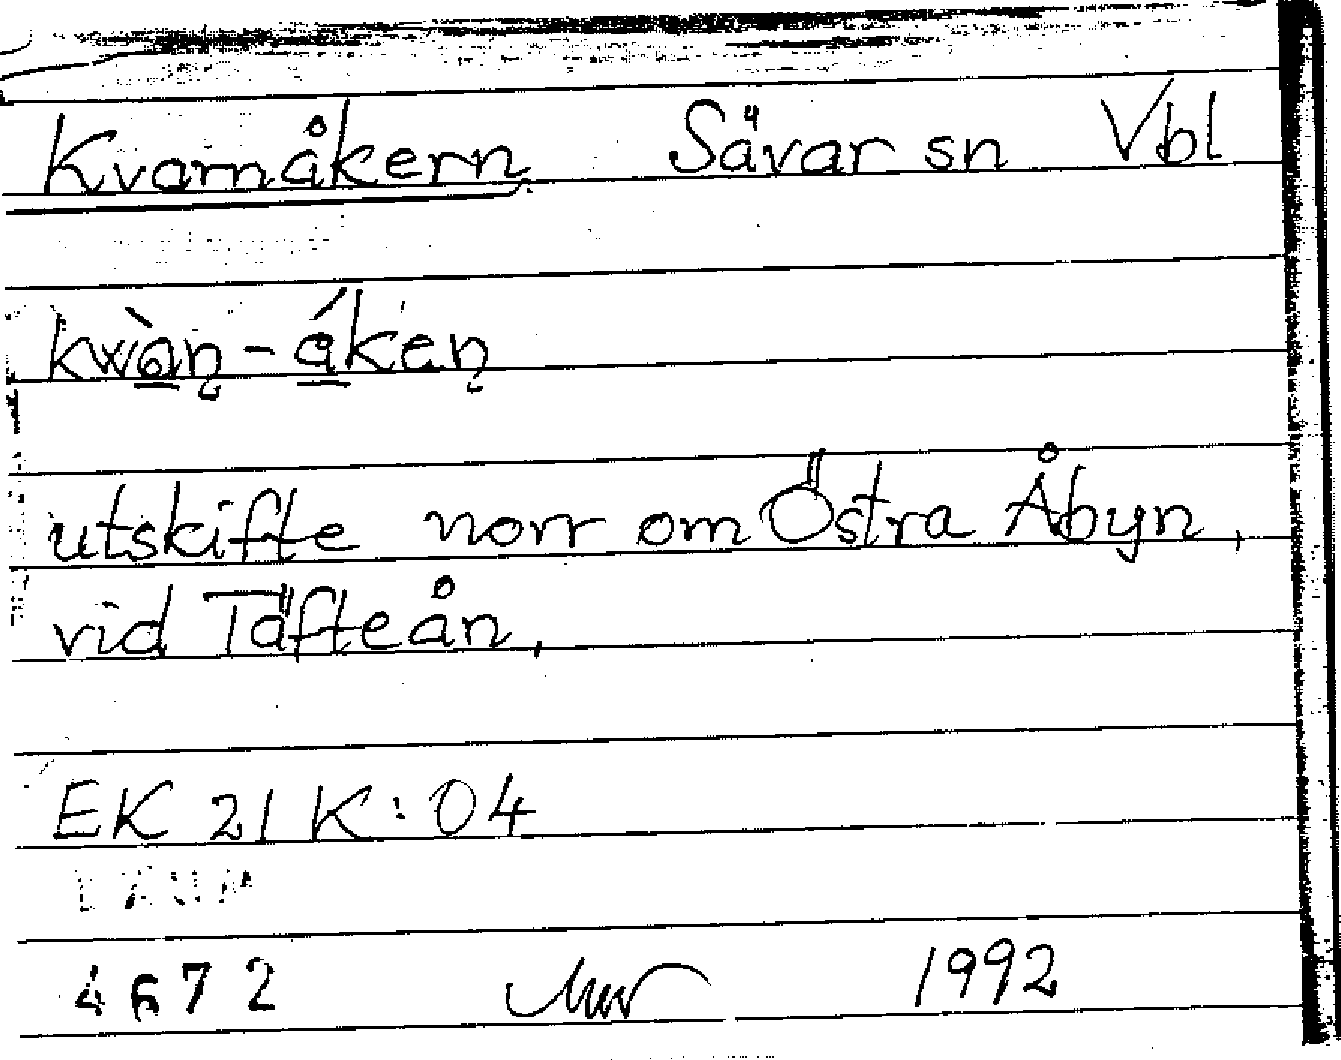 Kvarnåkern Sävar sn Vbl
kwàn̥-åken̥
utskifte norr om Östra Åbyn,
vid Täfteån,
EK 21 K:04
4672 1992